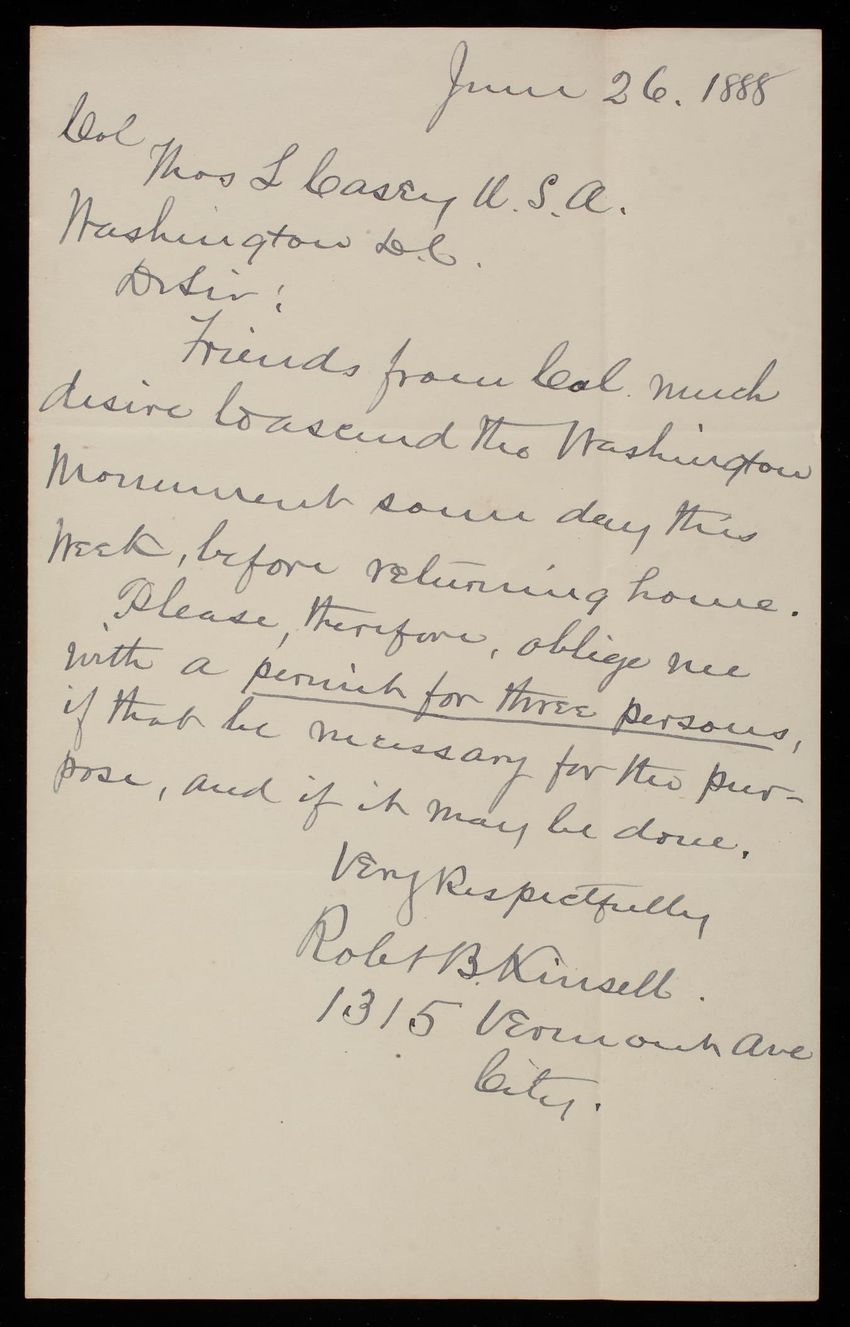 June 26. 1888
Col
Thos L Casey U.S.A.
Washington D.C.
Dr Sir:
Friends from Cal. much
desire to ascend the Washington
Monument some day this
week, before returning home.
Please, therefore, oblige me
with a permit for three persons,
if that be necessary for the pur-
pose, and if it may be done.
Very Respectfully
Robt B. Kinsell.
1315 Vermont Ave
City.